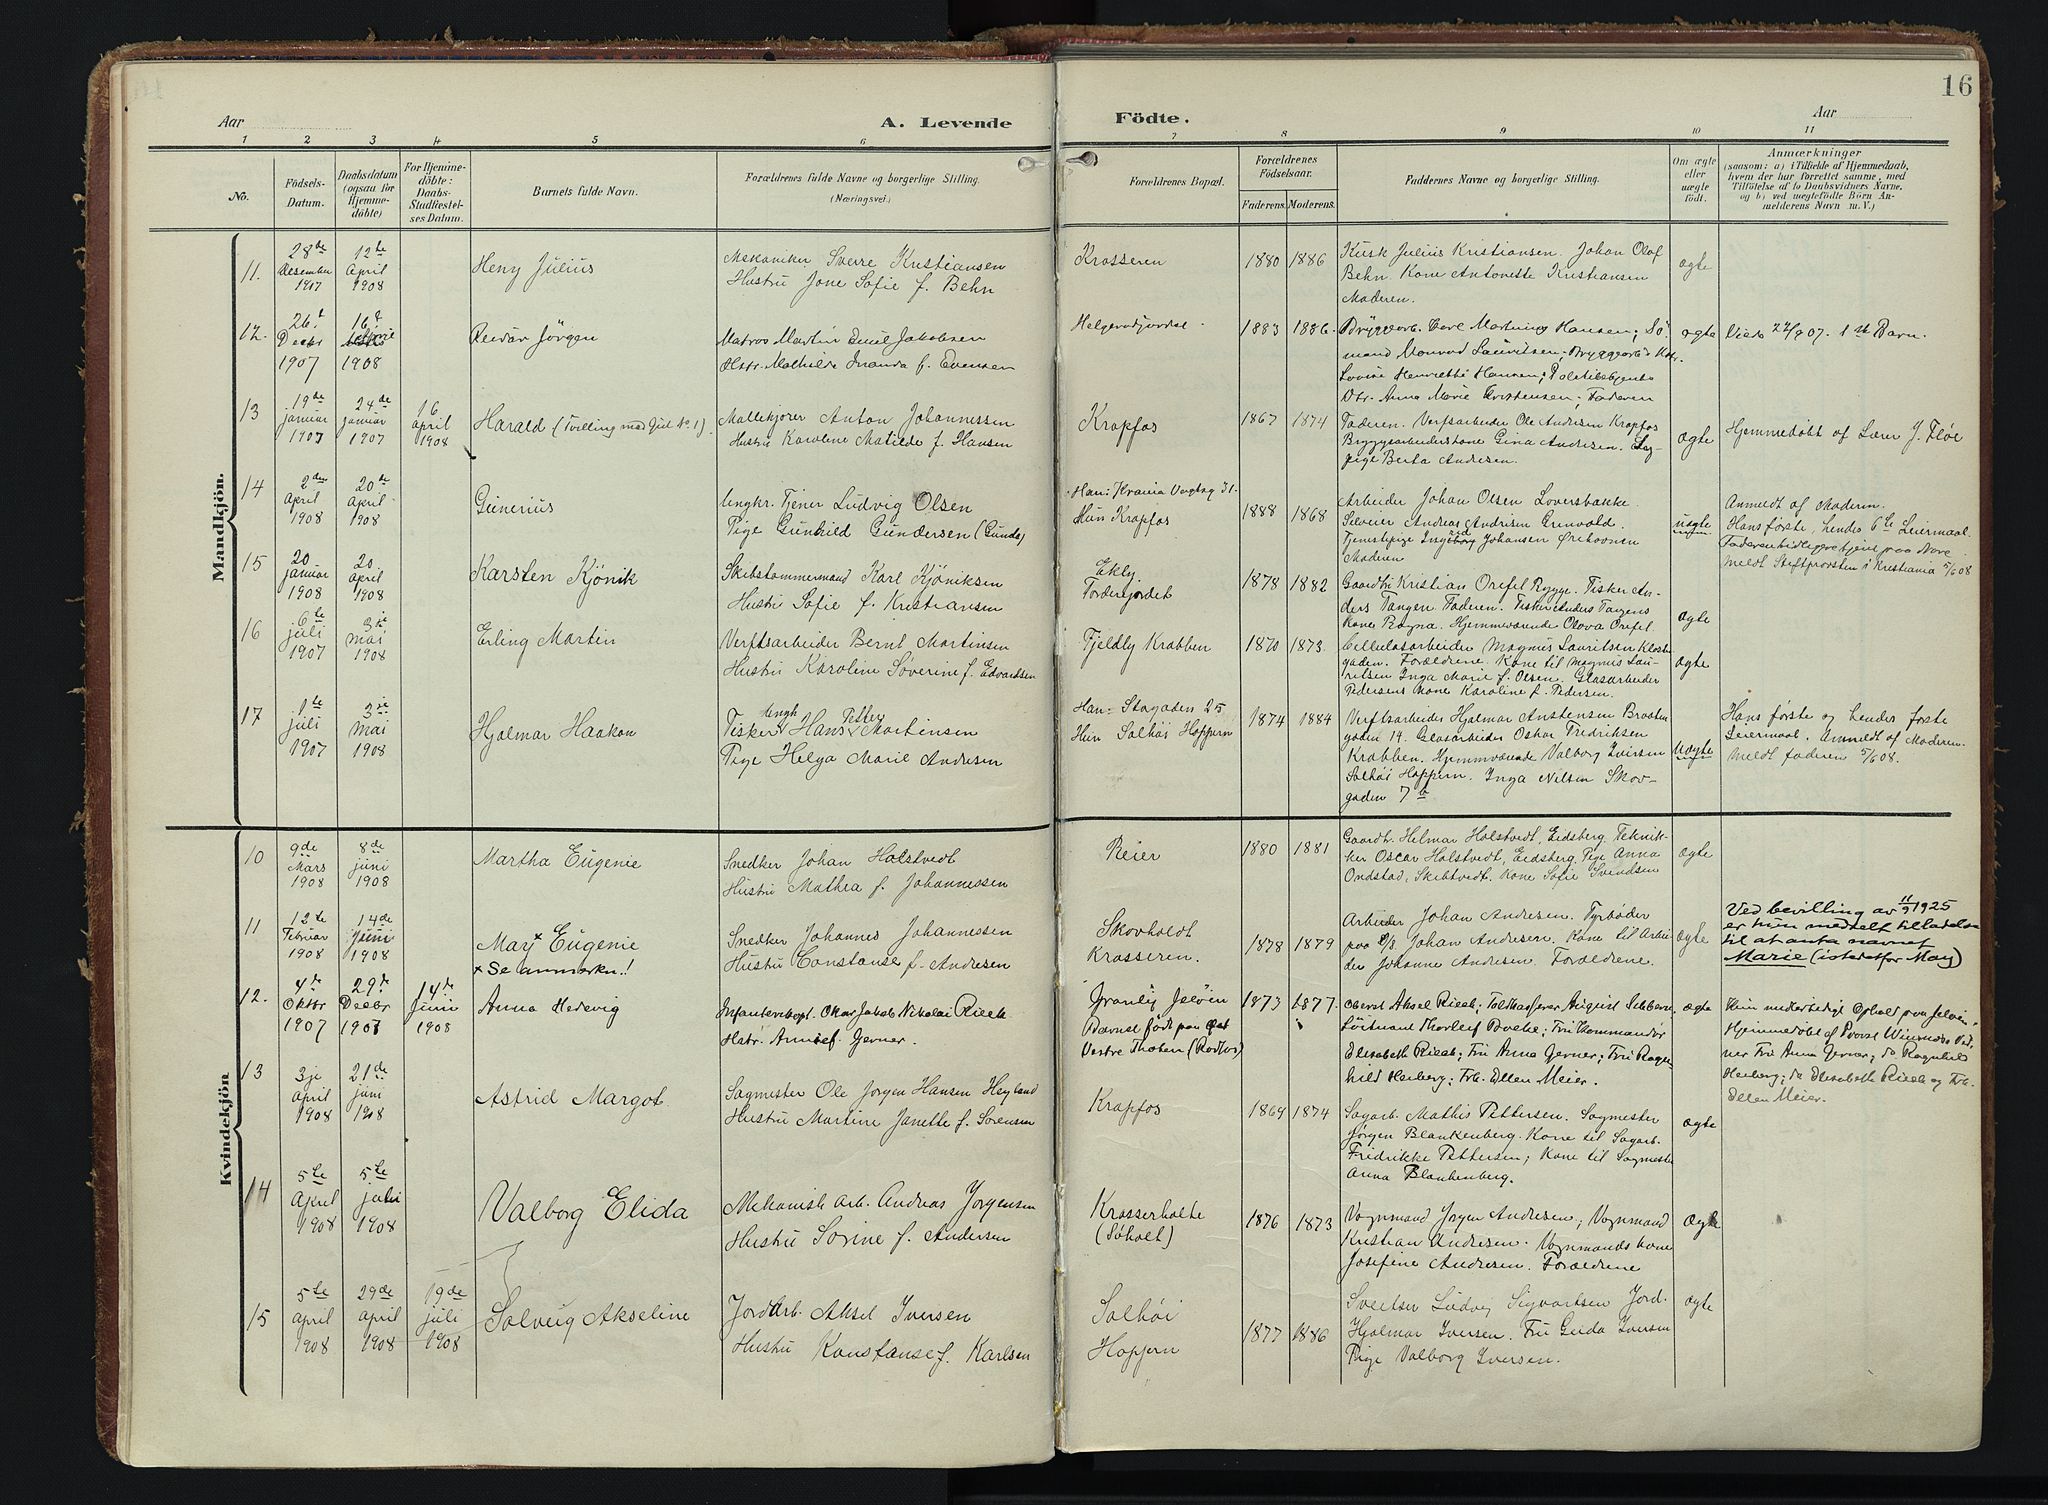 16
Aar
A. Levende
Födte.
Aar
1 2 3 4 5 6 7 8 9 10 11
No.
Födsels-
Datum.
Daabsdatum
(ogsaa for
Hjemme-
döbte)
For Hjemme-
döbte:
Daabs-
Stadfæstel-
ses Datum.
Barnets fulde Navn.
Forældrenes fulde Navne og borgerlige Stilling.
(Næringsvei.)
Forældrenes Bopæl.
Forældrenes
Födselsaar.
Faderens.
Moderens.
Faddernes Navne og borgerlige Stilling.
Om ægte
eller
uægte
födt.
Anmærkninger
(saasom: a) i Tilfælde af Hjemmedaab,
hvem der har forrettet samme, med
Tilföielse af to Daabsvidners Navne,
og b) ved uægtefödte Börn An-
melderens Navn m. V.)
Mandkjön.
11.
28de
Desember
1907
12te
April
1908
Heny Julius
Mekaniker Sverre Kristiansen
Hustru Jone Sofie f. Behn
Krosseren
1880
1886
Kusk Julius Kristiansen. Johan Olaf
Behn. Kone Antonette Kristiansen
Moderen.
ægte
12.
26.
Decbr
1907
16
April
1908
Reidar Jörgen
Matros Martin Emil Jakobsen
Hstr. Mathilde Inanda f. Evensen
1883
1886
Bryggearb. Carl Martinius Hansen; Sö-
mand Monrad Lauritsen; Bryggearb's Kstr.
Lovise Henriette Hansen; Politibetjents
Dtr. Anna Marie Christensen; Faderen
ægte
Viede 22/9 07. 1ste Barn.
13
19de
januar
1907
24de
januar
1907
16
april
1908
Harald (Tvilling med Gut No 1).
Mallekjører Anton Johannessen
Hustru Karoline Matilde f. Hansen
Krapfos
1867
1874
Faderen. Verfsarbeider Ole Andersen Krapfos
Bryggearbeiderskone Gina Andersen. Sy-
pige Berta Andresen.
ægte
Hjemmedöbt af Lærer J. Fløe
14
2den
April
1908
20de
April
1908
Gunerius
Ungkr. Tjener Ludvig Olsen
Pige Gunhild Gundersen (Gunda)
Han: Krania Vogtsg 31.
Hun Krapfos
1888
1868
Arbeider Johan Olsen Loversbakke
Andreas Andresen Grünvold.
Tjenestepige Johansen
Moderen
uægte
Anmeldt af Moderen.
Hans første, hendes 6te Leiermaal.
Meldt Stiftprovsten i Kristiania 5/6 08
15
20
januar
1908
20
april
1908
Karsten Kjönik
Skibstømmermand Karl Kjöniksen
Hustru Sofie f. Kristiansen
Ekly
1878
1882
Gaardbr Kristian Orefel Rygge. Fisker An-
ders Tangen. Faderen. Fisker Anders Tangens
Kone Ragna. Hjemmeværende Olava Orefel.
ægte
16
6te
juli
1907
3je
mai
1908
Erling Martin
Verftsarbeider Bernt Martinsen
Hustru Karoline Søverine f. Edvardsen
Fjeldly Krabben
1870
1873.
Cellulosarbeider Magnus Lauritsen Kloster-
gaden. Forældrene. Kone til Magnus Lau-
ritsen Inga Marie f. Olsen. Glasarbeider
Pedersens Kone Karoline f. Pedersen.
ægte
17
1ste
juli
1907
3je
mai
1908
Hjalmar Haakon
Fisker Ungk. Hans Petter Martinsen
Pige Helga Marie Andresen
Han: Stagaden 25
Hun Solhöi Hoppern
1874
1884
Verftsarbeider Hjalmar Anstensen Braaten
gaden 14. Glasarbeider Oskar Fredriksen
Krabben. Hjemmværende Valborg Iversen
Solhöi Hoppern. Inga Nilsen Skov-
gaden 7b
Uægte
Hans første og hendes første
Leiermaal. Anmeldt af Moderen.
Meldt faderen 5/6 08.
Kvindekjön
10
9de
Mars
1908
8de
juni
1908
Martha Eugenie
Snedker Johan Holstvedt
Hustru Mathea f. Johannessen
Reier
1880
1881
Gaardb. Helmar Holstvedt, Eidsberg. Teknik-
ker Oscar Holstvedt, Eidsberg. Pige Anna
Ondstad, Skibtvedt. Kone Sofie Svendsen
ægte
11
12te
Februar
1908
14de
Juni
1908
Mary x Eugenie
x Se anmerkn.!
Snedker Johannes Johannessen
Hustru Constanse f. Andresen
Skovholdt
Krosseren.
1878
1879
Arbeider Johan Andresen. Fyrbøder
paa D/S. Johan Andresen. Kone til Arbei-
der Johanne Andresen. Forældrene.
ægte
Ved bevilling av 11/9 1925
er hun meddelt tilladelse
til at anta navnet
Marie (istedetfor May)
12.
4de
Oktbr
1907
29de
Decbr
1907
14de
Juni
1908
Anna Hedevig
Infanterikapt. Okar Jakob Nikolai Rieck
Hstr. Annie f. Gerner.
Granly Jeløen
Barnet født paa
Vestre Thoten (Rodfos)
1873
1877.
Oberst Aksel Rieck; Toldkasserer August Sibbern
Löitnant Thorleif Boeke; Fru Kommandör
Elisabeth Rieck; Fru Anna Gerner; Fru Ragn-
hild Heiberg; Frk. Ellen Meier.
ægte
Kun midlertidigt Ophold paa Jeløen.
Hjemmedöbt af Provst Vid-
ner Fru Anna Gerner; do Ragnhild
Heiberg; do Elisabeth Rieck og Frk.
Ellen Meier.
13
3je
April
1908
21de
juni
1908
Astrid Margot
Sagmester Ole Jørgen Hansen Heyland
Hustru Martine Janette f. Sørensen
Krapfos
1869
1874
Sagarb. Mathis Pettersen. Sagmester
Jørgen Blankenberg. Kone til Sagarb.
Fredrikke Pettersen; Kone til Sagmester
Anna Blankenberg.
ægte
14
5te
April
1908
5te
juli
1908
Valborg Elida
Mekanisk arb. Andreas Jørgensen
Hustru Sorine f. Andersen
Krosserholte
(Søholt)
1876
1873
Vognmand Jørgen Andresen; Vognmand
Kristian Andresen. Vognmands kone
Josefine Andresen. Forældrene
ægte
15
5te
april
1908
29de
april
1908
19de
juli
1908
Solveig Akseline
Jordarb. Aksel Iversen
Hustru Konstanse f. Karlsen
Solhöi
Hoppern
1877
1886
Sveitser Ludvig Sigvartsen Jord.
Hjalmar Iversen. Fru Gerda Iversen
Pige Valborg Iversen.
ægte